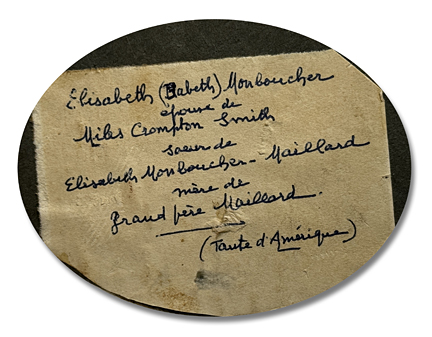 Elisabeth (Babeth) Monboucher
épouse de
Miles Crompton Smith
soeur de
Elisabeth Monboucher-Maillard
mère de
grand père Maillard.
(Tante d'Amérique)